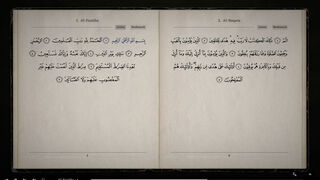 1. Al-Faatiha
بِسْمِ اللَّهِ الرَّحْمَٰنِ الرَّحِيمِ ۝ الْحَمْدُ لِلَّهِ رَبِّ الْعَالَمِينَ ۝ الرَّحْمَٰنِ
الرَّحِيمِ ۝ مَالِكِ يَوْمِ الدِّينِ ۝ إِيَّاكَ نَعْبُدُ وَإِيَّاكَ نَسْتَعِينُ ۝
اهْدِنَا الصِّرَاطَ الْمُسْتَقِيمَ ۝ صِرَاطَ الَّذِينَ أَنْعَمْتَ عَلَيْهِمْ غَيْرِ
الْمَغْضُوبِ عَلَيْهِمْ وَلَا الضَّالِّينَ ۝
2. Al-Baqara
الم ۝ ذَٰلِكَ الْكِتَابُ لَا رَيْبَ فِيهِ هُدًى لِلْمُتَّقِينَ ۝ الَّذِينَ يُؤْمِنُونَ بِالْغَيْبِ
وَيُقِيمُونَ الصَّلَاةَ وَمِمَّا رَزَقْنَاهُمْ يُنْفِقُونَ ۝ وَالَّذِينَ يُؤْمِنُونَ بِمَا أُنْزِلَ إِلَيْكَ وَمَا أُنْزِلَ
مِنْ قَبْلِكَ وَبِالْآخِرَةِ هُمْ يُوقِنُونَ ۝ أُولَٰئِكَ عَلَىٰ هُدًى مِنْ رَبِّهِمْ وَأُولَٰئِكَ هُمُ
الْمُفْلِحُونَ ۝